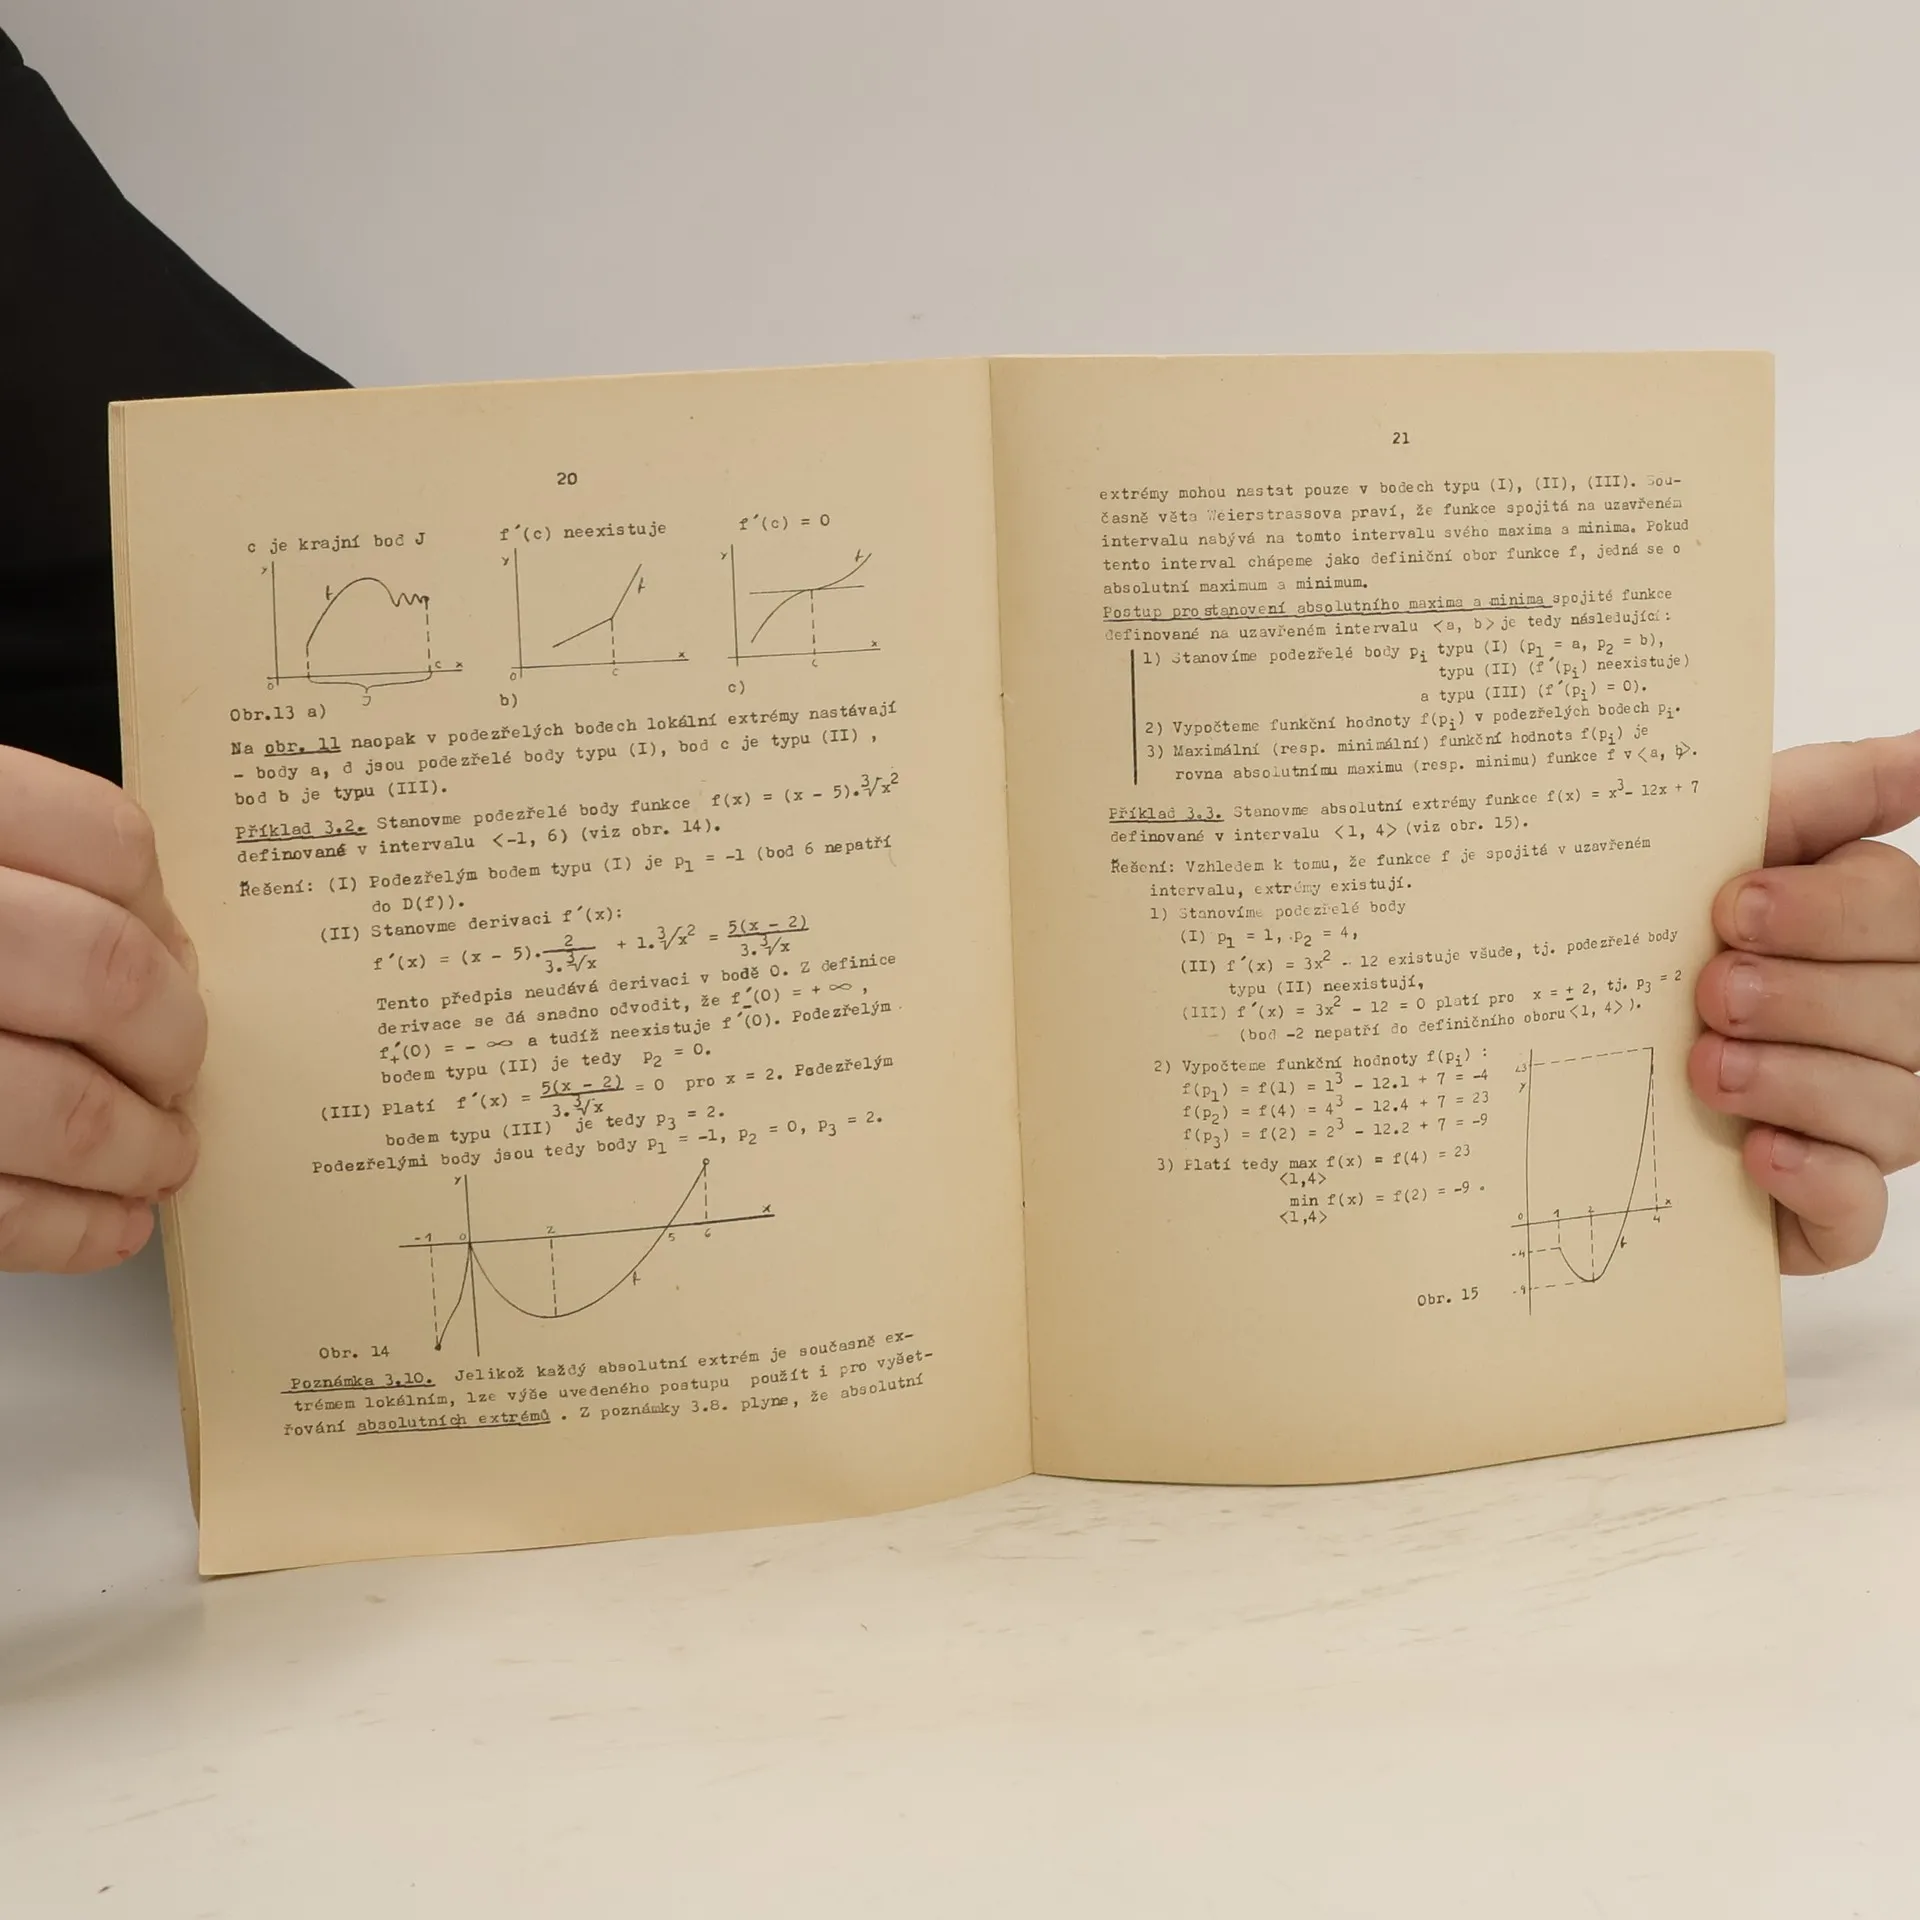 20
c je krajní bod J
f´(c) neexistuje
f´(c) = 0
y
f
0
c
x
J
y
f
0
c
x
y
f
c
x
Obr.13 a)
b)
c)
Na obr. 11 naopak v podezřelých bodech lokální extrémy nastávají
- body a, d jsou podezřelé body typu (I), bod c je typu (II) ,
bod b je typu (III).
Příklad 3.2. Stanovme podezřelé body funkce f(x) = (x - 5).∛x²
definované v intervalu <-1, 6) (viz obr. 14).
Řešení: (I) Podezřelým bodem typu (I) je p₁ = -1 (bod 6 nepatří
do D(f)).
(II) Stanovme derivaci f´(x):
f´(x) = (x - 5).2/(3.∛x) + 1.∛x² = 5(x - 2)/(3.∛x)
Tento předpis neudává derivaci v bodě 0. Z definice
derivace se dá snadno odvodit, že f₋´(0) = + ∞ ,
f₊´(0) = - ∞ a tudíž neexistuje f´(0). Podezřelým
bodem typu (II) je tedy p₂ = 0.
(III) Platí f´(x) = 5(x - 2)/(3.∛x) = 0 pro x = 2. Podezřelým
bodem typu (III) je tedy p₃ = 2.
Podezřelými body jsou tedy body p₁ = -1, p₂ = 0, p₃ = 2.
y
-1
0
2
5
6
x
f
Obr. 14
Poznámka 3.10. Jelikož každý absolutní extrém je současně ex-
trémem lokálním, lze výše uvedeného postupu použít i pro vyšet-
řování absolutních extrémů . Z poznámky 3.8. plyne, že absolutní
21
extrémy mohou nastat pouze v bodech typu (I), (II), (III). Sou-
časně věta Weierstrassova praví, že funkce spojitá na uzavřeném
intervalu nabývá na tomto intervalu svého maxima a minima. Pokud
tento interval chápeme jako definiční obor funkce f, jedná se o
absolutní maximum a minimum.
Postup pro stanovení absolutního maxima a minima spojité funkce
definované na uzavřeném intervalu <a, b> je tedy následující:
1) Stanovíme podezřelé body pᵢ typu (I) (p₁ = a, p₂ = b),
typu (II) (f´(pᵢ) neexistuje)
a typu (III) (f´(pᵢ) = 0).
2) Vypočteme funkční hodnoty f(pᵢ) v podezřelých bodech pᵢ.
3) Maximální (resp. minimální) funkční hodnota f(pᵢ) je
rovna absolutnímu maximu (resp. minimu) funkce f v <a, b>.
Příklad 3.3. Stanovme absolutní extrémy funkce f(x) = x³- 12x + 7
definované v intervalu <1, 4> (viz obr. 15).
Řešení: Vzhledem k tomu, že funkce f je spojitá v uzavřeném
intervalu, extrémy existují.
1) Stanovíme podezřelé body
(I) p₁ = 1, p₂ = 4,
(II) f´(x) = 3x² - 12 existuje všude, tj. podezřelé body
typu (II) neexistují,
(III) f´(x) = 3x² - 12 = 0 platí pro x = ± 2, tj. p₃ = 2
(bod -2 nepatří do definičního oboru <1, 4> ).
2) Vypočteme funkční hodnoty f(pᵢ) :
f(p₁) = f(1) = 1³ - 12.1 + 7 = -4
f(p₂) = f(4) = 4³ - 12.4 + 7 = 23
f(p₃) = f(2) = 2³ - 12.2 + 7 = -9
3) Platí tedy max f(x) = f(4) = 23
<1,4>
min f(x) = f(2) = -9 .
<1,4>
23
y
0
1
2
4
x
-4
-9
f
Obr. 15